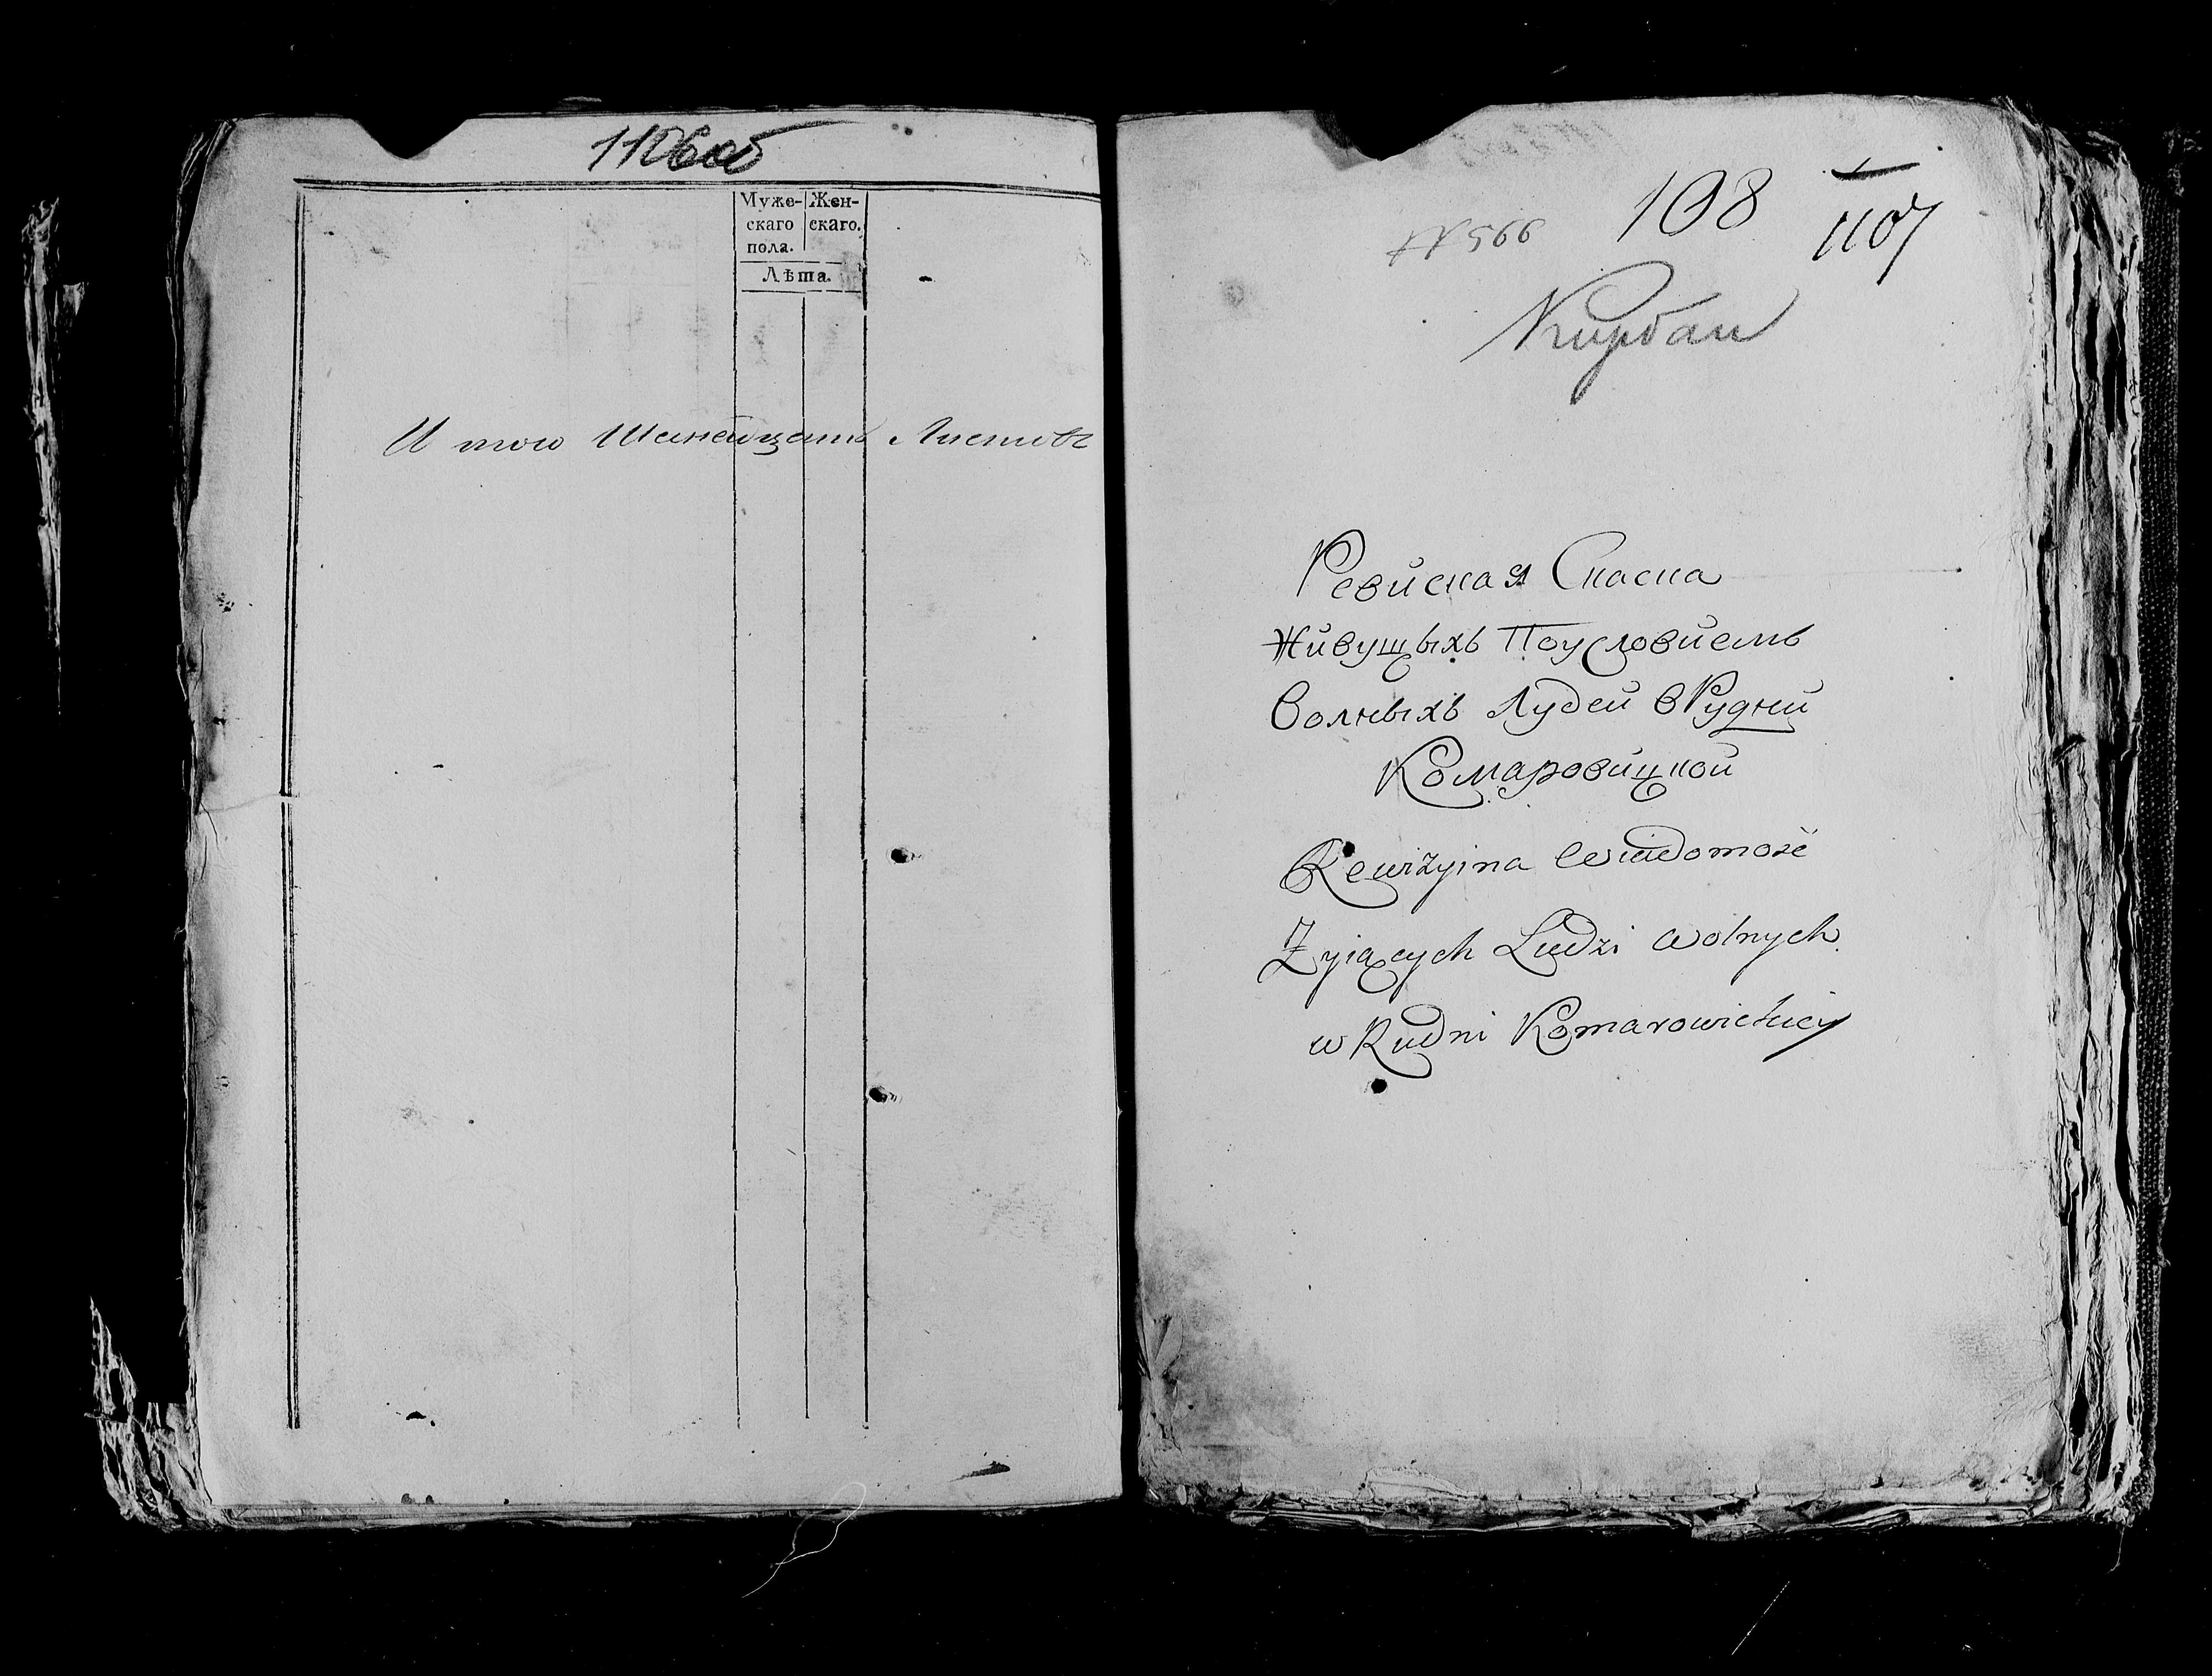 1106об
Муже-
скаго
пола.
Жен-
скаго.
Лѣта.
И того Шеснацать Листовъ
№ 566
108
1107
Курбан
Ревиская Скаска
Живущыхъ Поусловиемъ
Волныхъ Лудей в Рудни
Комаровицкой
Rewizyina Wiadomosć
Żyiących Ludzi wolnych
w Rudni Komarowickiey